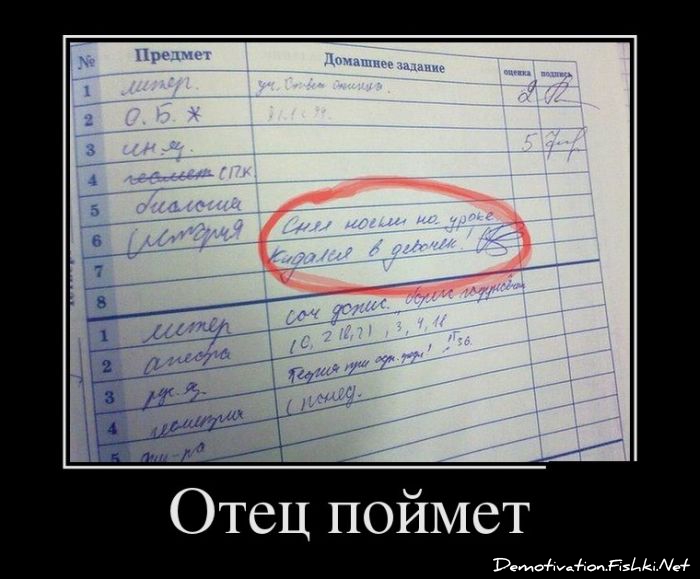 № Предмет Домашнее задание оценка подпись
1 литер. 2
2 О.Б.Ж
3 ин.яз. 5
4 геомет СПК
5 биология
6 история Снял носки на уроке
7 Кидался в девочек!
8
1 литер соч допис.
2 алгебра 3, 4, 18
3 рус. яз. Теория при
4 геометрия (понед.
5 физ-ра
Отец поймет
Demotivation.Fishki.Net